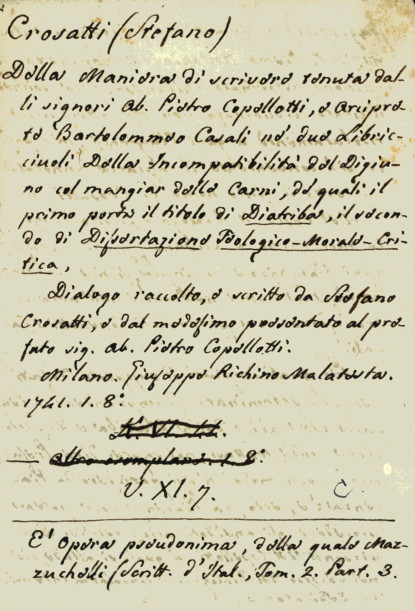 Crosatti (Stefano)
Della Maniera di scrivere tenuta dal-
li signori Ab. Pietro Copellotti, e Arcipre-
te Bartolommeo Casali ne' due Libric-
ciuoli Della Incompatibilità del Digiu-
no col mangiar delle Carni, de' quali il
primo porta il titolo di Diatriba, il secon-
do di Dissertazione Teologico-Morale-Cri-
tica,
Dialogo raccolto, e scritto da Stefano
Crosatti, e dal medesimo presentato al pre-
fato sig. Ab. Pietro Copellotti.
Milano. Giuseppe Richino Malatesta.
1741. 1. 8.°
altro exemplare. 1. 8°.
V. XI. 7.
C
E' Opera pseudonima, della quale Maz-
zuchelli (Scritt. d'Ital., Tom. 2. Part. 3.